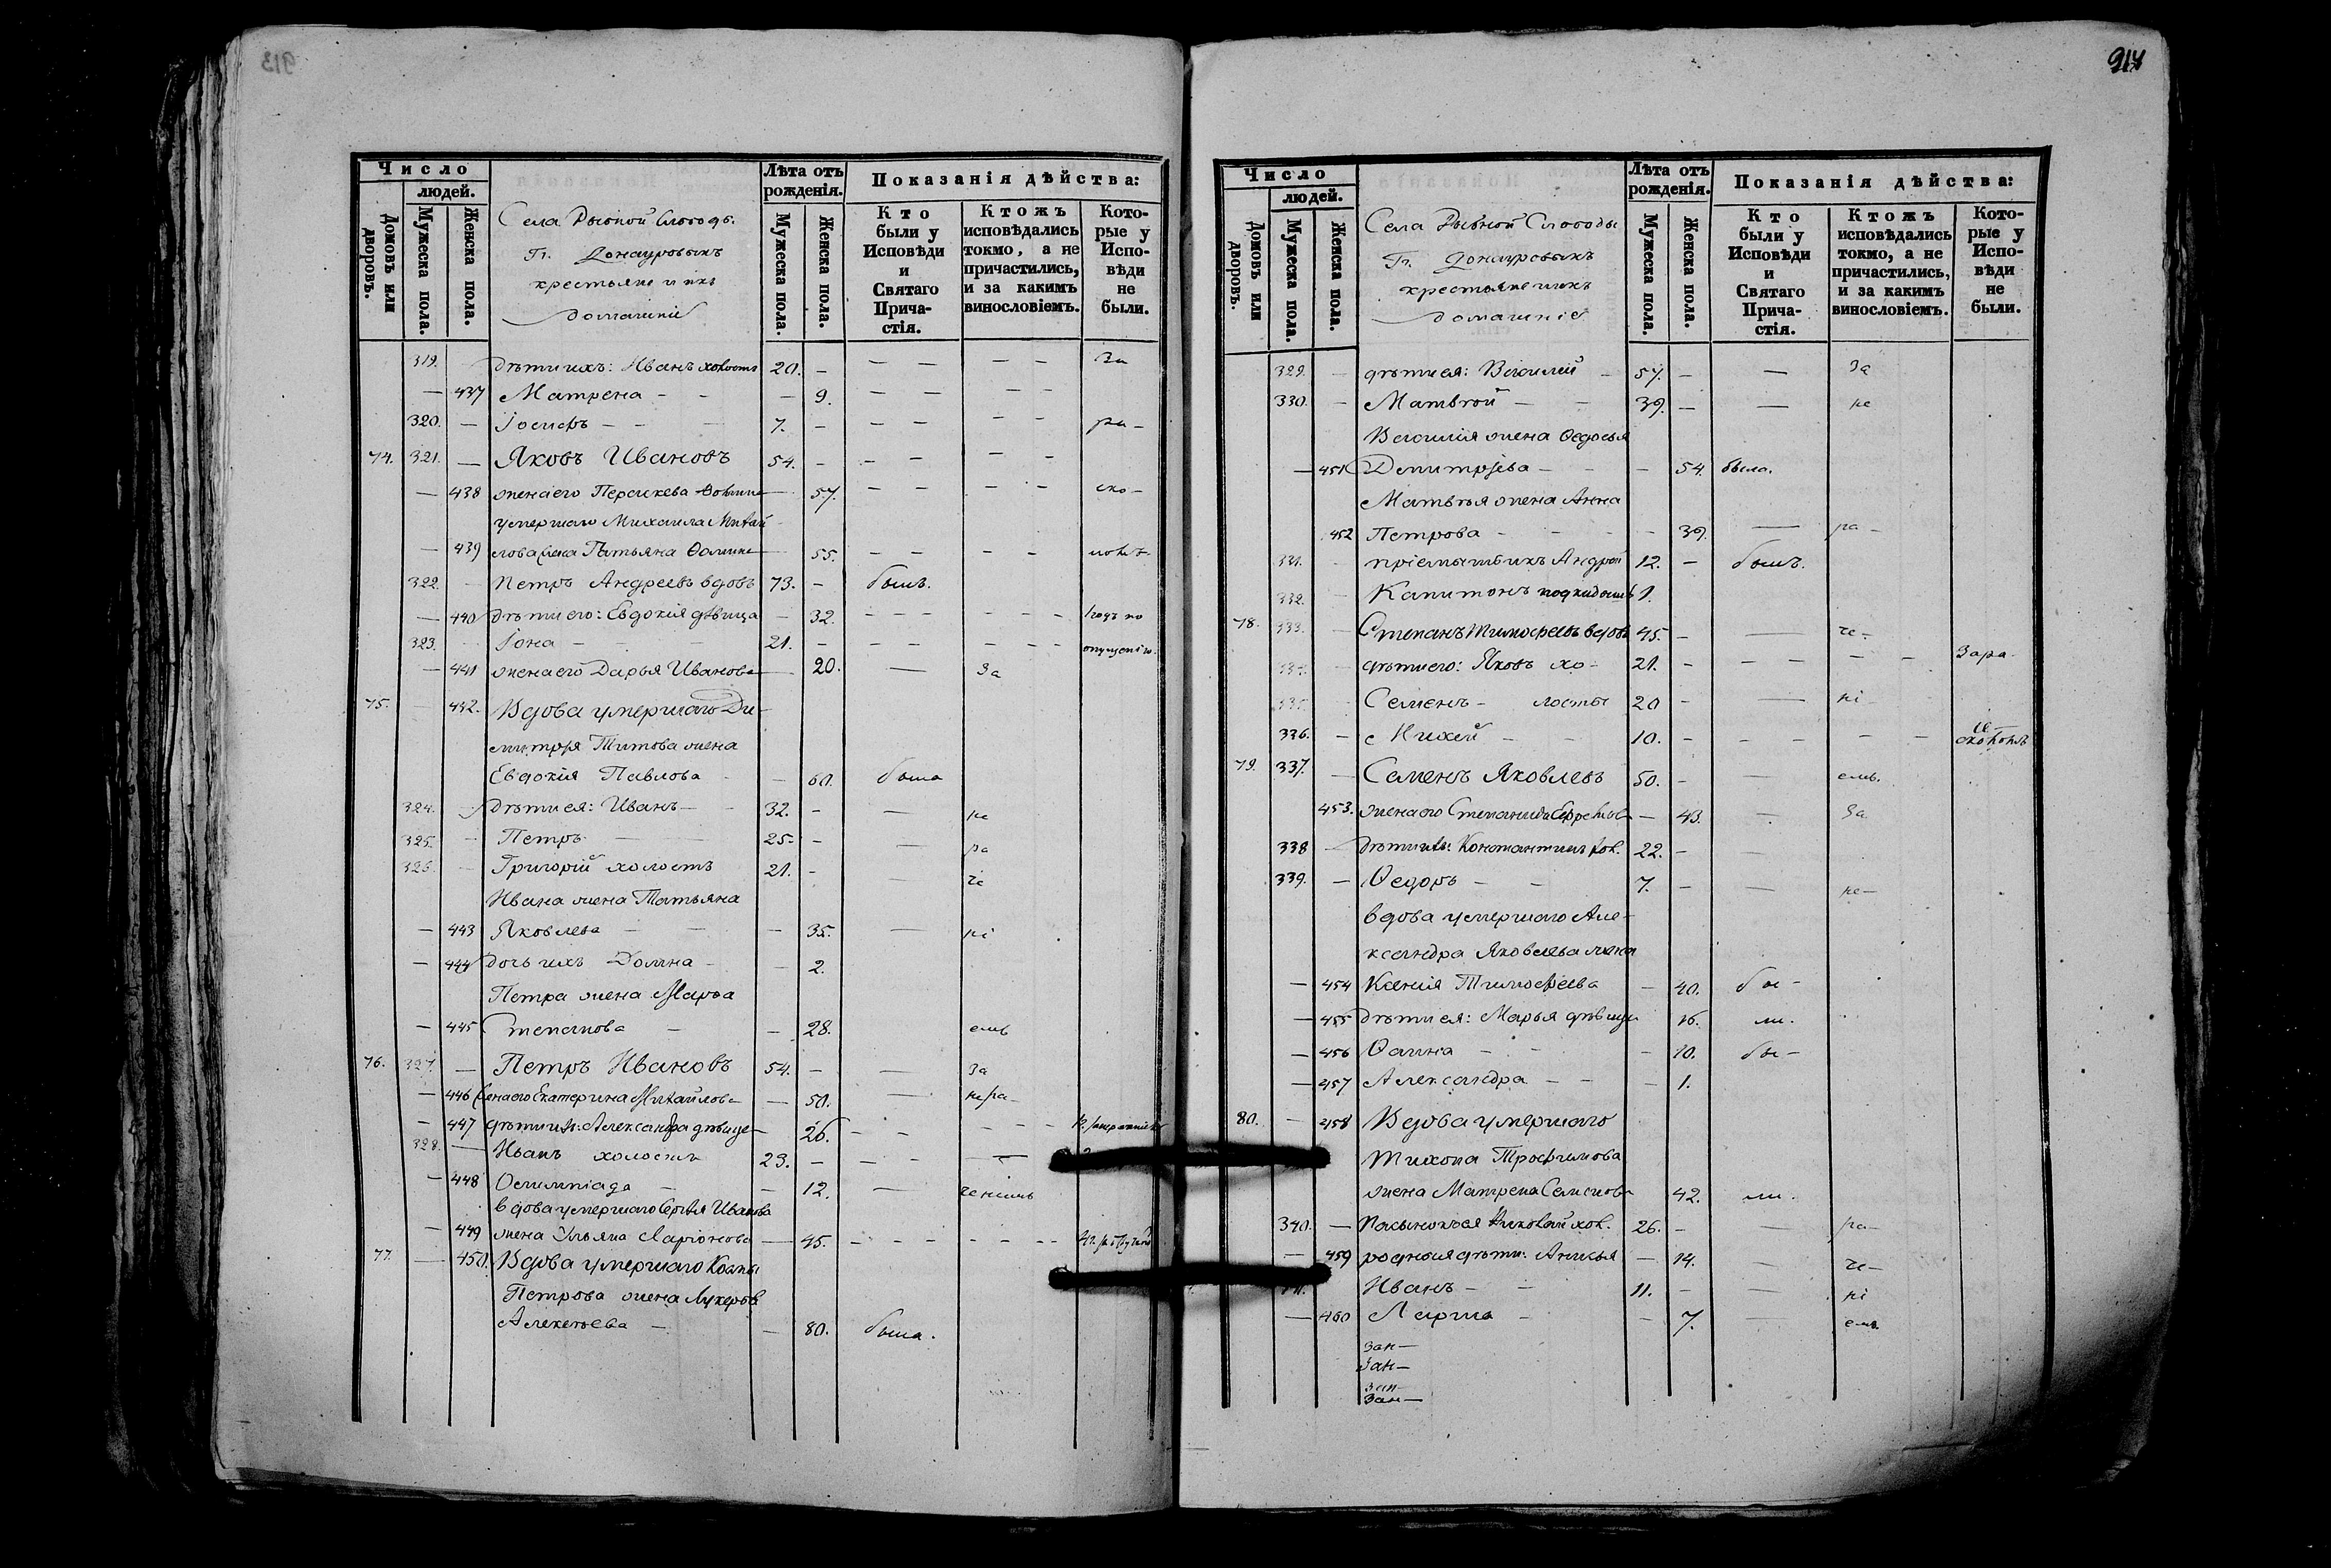 913
Число
людей.
Домовъ или дворовъ.
Мужеска пола.
Женска пола.
Села Рыбной Слободы
Гг. Донауровыхъ
крестьяне и ихъ
домашніе
Лѣта отъ рожденія.
Мужеска пола.
Женска пола.
Показанія дѣйства:
Кто были у Исповѣди и Святаго Прича-стія.
Ктожъ исповѣдались токмо, а не причастились, и за какимъ винословіемъ.
Кото-рые у Испо-вѣди не были.
319. дѣти ихъ: Иванъ холостъ 20. — — — — — За
— 437 Матрена — — — 9. — —
320. — Іосифъ — — — 7. — — — — — ра—
74. 321. — Яковъ Ивановъ 54. — — — — —
— 438 жена его Параскева 57. — — — — ско—
умершаго Михаила Михай
— 439 лова жена Татьяна 55. — — — —
322. — Петръ Андреевъ вдовъ 73. — былъ.
— 440 дѣти его: Евдокія дѣвица — 32. — — — — —
323. Іона — — 21. — — — — — — опущенію.
— 441 жена его Дарья Иванова — 20. — За
75. — 442. Вдова умершаго Ди-
митрія Титова жена
Евдокія Павлова — — 60. была
324. — дѣти ея: Иванъ — — 32. — — не
325. — Петръ — — 25. — — ра
326. — Григорій холостъ 21. — — че
Ивана жена Татьяна
— 443 Яковлева — — — 35. — ні
— 444 дочь ихъ Домна — — 2.
Петра жена Марѳа
— 445 Степанова — — 28. емъ
76. 327. — Петръ Ивановъ 54. — — За
— 446 жена его Екатерина Михайлова — 50. — нера—
— 447 дѣти ихъ: Александра дѣвица — 26. — — — — —
328. — Иванъ холостъ 23. — — — —
— 448 Олимпіада — — 12. — ченіемъ
вдова умершаго Сергѣя Иванова
— 449 жена Ульяна Ларіонова — 45. — — — — — — —
77. — 450. Вдова умершаго Козмы
Петрова жена Лукерья
Алексѣева — — 80. была.
914
Число
людей.
Домовъ или дворовъ.
Мужеска пола.
Женска пола.
Села Рыбной Слободы
Гг. Донауровыхъ
крестьяне и ихъ
домашніе
Лѣта отъ рожденія.
Мужеска пола.
Женска пола.
Показанія дѣйства:
Кто были у Исповѣди и Святаго Прича-стія.
Ктожъ исповѣдались токмо, а не причастились, и за какимъ винословіемъ.
Кото-рые у Испо-вѣди не были.
329. — дѣти ея: Василій — 57. — — За
330. — Матвѣй — — 39. — — не
Василія жена Ѳедосья
— 451 Димитріева — — — 54. была.
Матвѣя жена Анна
452 Петрова — — — — 39. — ра—
331. — пріемышъ ихъ Андрей 12. — былъ.
332. — Капитонъ подкидышъ 1.
78. 333. — Степанъ Тимофеевъ вдовъ 45. — — че—
334. — дѣти его: Яковъ хо— 21. — — — — — Зара—
335. — Семенъ — лосты 20 — — ні
336. — Михей — — 10. — — — — —
79. 337. — Семенъ Яковлевъ 50. — — емъ.
453. жена его Степанида — 43. — За
338 — дѣти ихъ: Константинъ хол. 22. — —
339. — Ѳедоръ — — 7. — — не—
вдова умершаго Але-
ксандра Яковлева жена
— 454 Ксенія Тимофеева — 40. бы—
— 455 дѣти ея: Марья дѣвица 16. ли.
— 456 Ѳаина — — — 10. бы—
— 457 Александра — — — 1.
80. — 458 Вдова умершаго
Тихона Трофимова
жена Матрена Семенова 42. ли.
340. — Пасынокъ ея Николай хол. 26. — — ра—
— 459 родныя дѣти: Анисья — 14. — че—
Иванъ — — 11. — — ні
— 460 Марѳа — — 7. — емъ
Зан—
Зан—
Зан—
Зан—